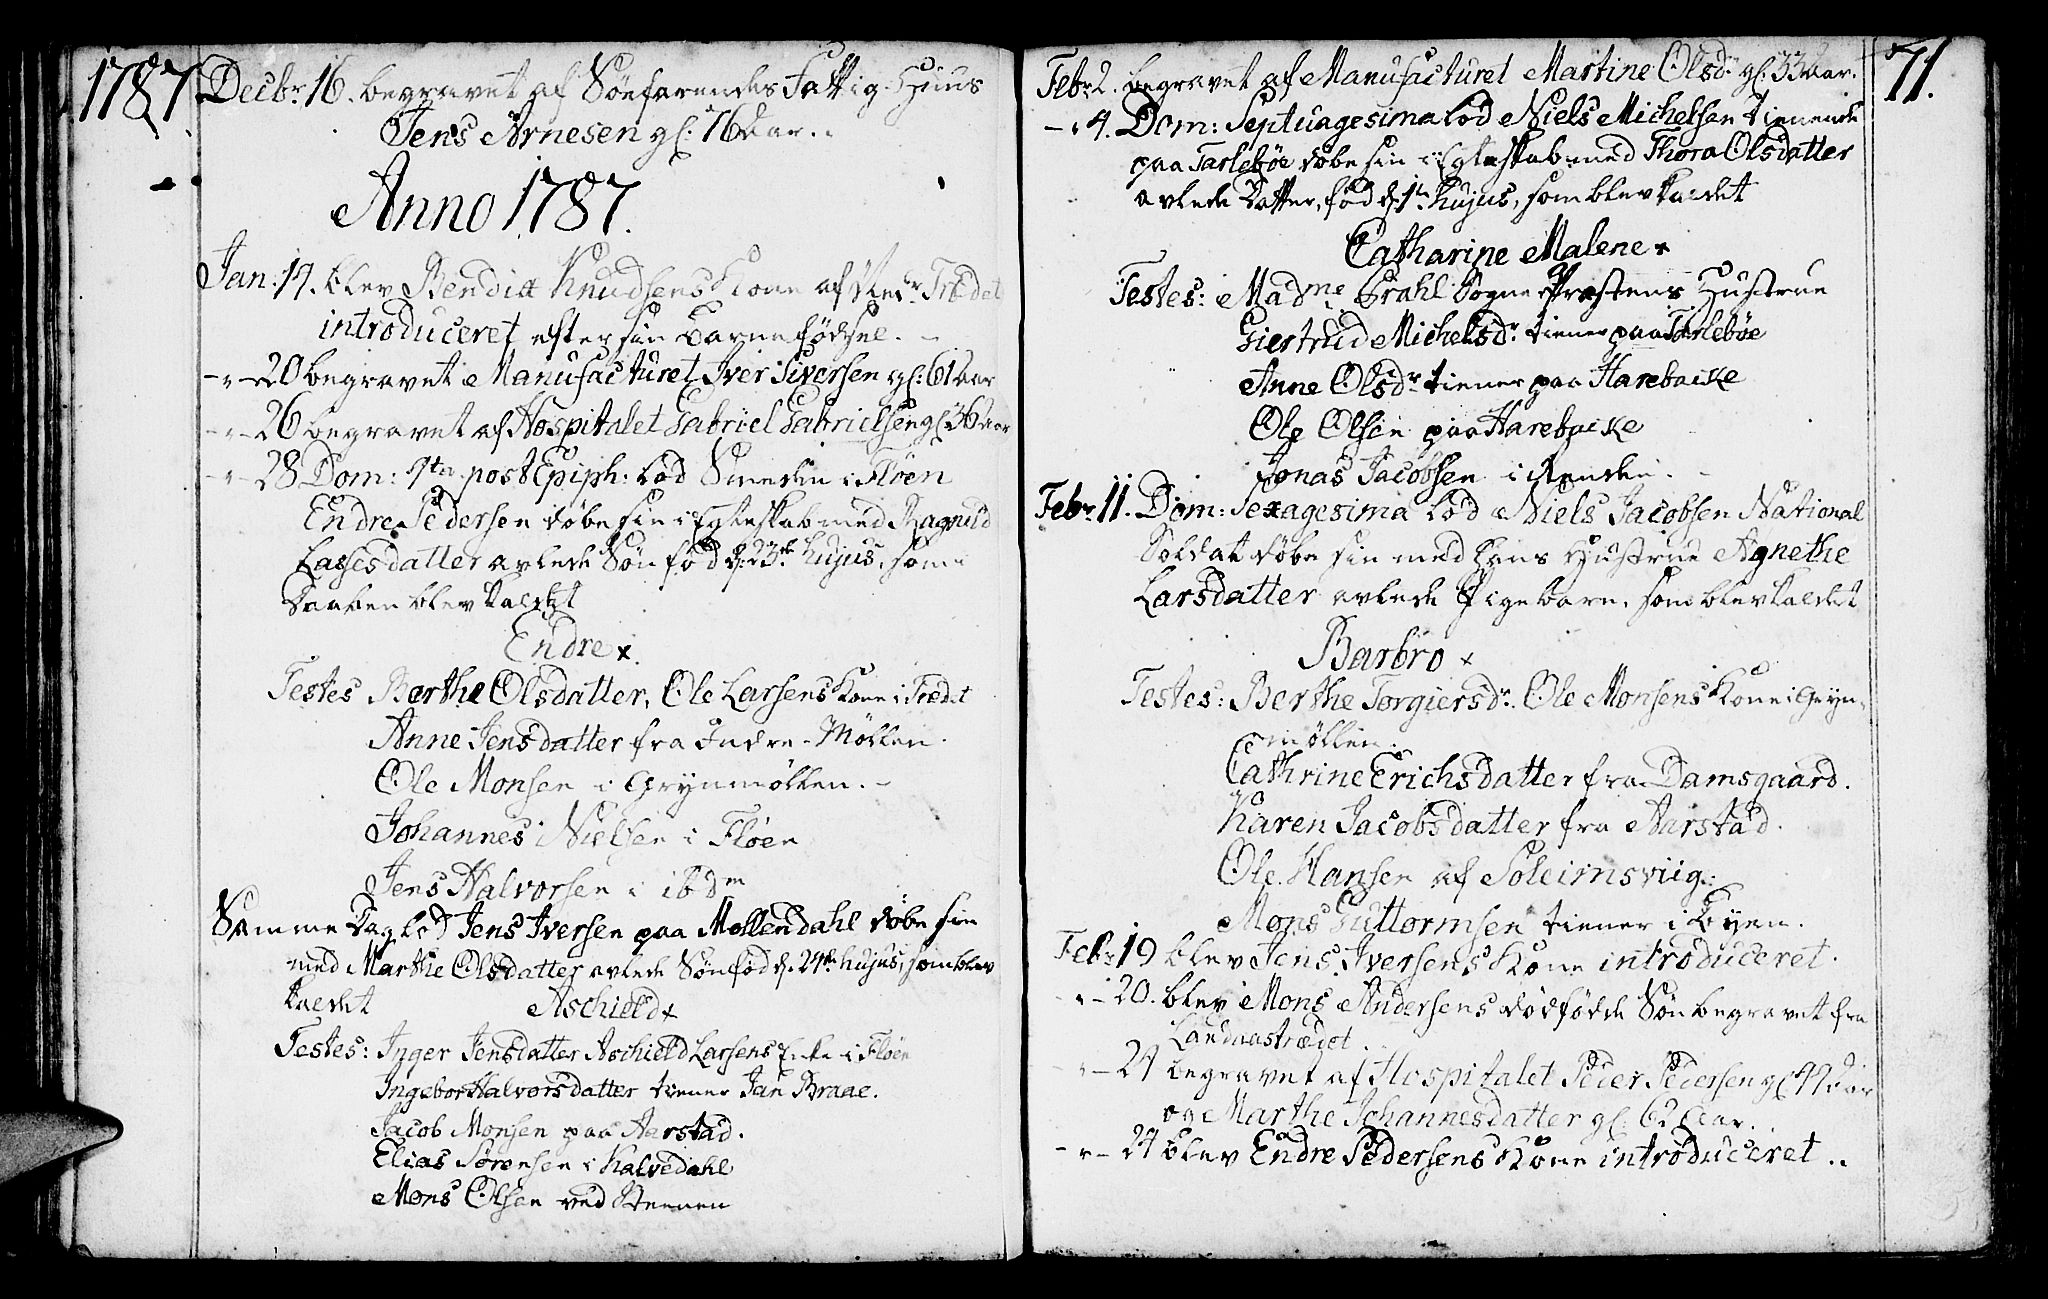 1787
Decbr. 16. begravet af Søefarendes Fattig-Huus
Jens Arnesen gl: 76 Aar.
Anno 1787.
Jan: 17. blev Bendix Knudsens Kone af Nedr. Trædet
introduceret efter sin Barnefødsel.
-"- 20 begravet Manufacturet Iver Siversen gl: 61 Aar
-"- 26 begravet af Hospitalet Gabriel Gabrielsen gl: 36 Aar
-"- 28 Dom: 4ta post Epiph: lod Smeden i Fløen
Endre Pedersen døbe sin i Egteskab med Ragnild
Lassesdatter avlede Søn fød d: 23de hujus, som i
Daaben blev kaldet
Endre x
Testes Berthe Olsdatter, Ole Larsens Kone i Trædet
Anne Jensdatter fra Indre-Møllen.
Ole Monsen i Grynmøllen. -
Johannes Nielsen i Fløen
Jens Halvorsen i ibdm
Samme Dag lod Jens Iversen paa Møllendahl døbe sin
med Marthe Olsdatter avlede Søn fød d. 24de hujus, som blev
kaldet Aschield x
Testes: Inger Jensdatter Aschield Larsens Enke i Fløen
Ingebor Halvorsdatter tiener Jan Braae.
Jacob Monsen paa Aarstad.
Elias Sørensen i Kalvedahl
Mons Olsen ved Steenen
71.
Febr 2. begravet af Manufacturet Martine Olsdr gl: 33 Aar.
-"- 4. Dom: Septuagesima lod Niels Michelsen tienende
paa Tarlebøe døbe sin i Egteskab med Thora Olsdatter
avlede Datter, fød d. 1te hujus, som blev kaldet
Catharine Malene x
Testes: Madme Grahl Sogne Præstens Hustrue
Giertrud Michelsdr. tiener paa Tarlebøe
Anne Olsdr tiener paa Harebacke
Ole Olsen paa Harebacke
Jonas Jacobsen i
Febr 11. Dom: Sexagesima lod Niels Jacobsen National
Soldat døbe sin med hans Hustrue Agnethe
Larsdatter avlede Pigebarn, som blev kaldet
Barbro x
Testes: Berthe Torgiersdr. Ole Monsens Kone i Gryn-
møllen.
Cathrine Erichsdatter fra Damsgaard.
Karen Jacobsdatter fra Aarstad.
Ole Hansen af Soleimsviig.
Mons Guttormsen tiener i Byen.
Febr 19 blev Jens Iversens Kone introduceret.
-"- 20. blev Mons Andersens dødfødde Søn begravet fra
Landaastrædet.
-"- 24 begravet af Hospitalet Peder Pedersen gl: 47 Aar
og Marthe Johannesdatter gl: 62 Aar.
-"- 24 blev Endre Pedersens Kone introduceret ..